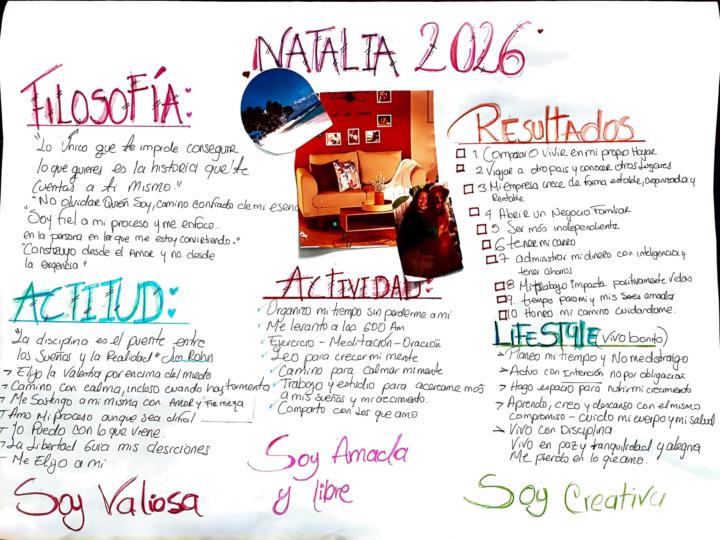 NATALIA 2026
FILOSOFÍA:
"Lo Único que te impide conseguir
lo que quieres es la historia que te
cuentas a ti Mismo."
"No olvidar Quién Soy, camino confiado de mi esencia
"Soy fiel a mi proceso y me enfoco
en la persona en la que me estoy convirtiendo."
"Construyo desde el Amor y no desde
la exigencia"
ACTITUD:
"La disciplina es el puente entre
los Sueños y la Realidad" Jim Rohn
→ Elijo la Valentía por encima del miedo
→ Camino con calma, incluso cuando hay tormento
→ Me Sostengo a mi misma con AMOR y Firmeza
→ Amo Mi proceso aunque sea difícil
→ Yo Puedo con lo que viene.
→ La Libertad Guia mis desiciones
- Me Elijo a mi
Soy Valiosa
ACTIVIDAD:
Organizo mi tiempo sin perderme a mi
Me levanto a las 6:00 Am
Ejercicio - Meditación - Oración
Leo para crecer mi mente
Camino para calmar mi mente
Trabajo y estudio para acercarme más
a mis sueños y mi crecimiento.
Comparto con los que amo
Soy Amada
y libre
RESULTADOS
1 Comprar o vivir en mi propio Hogar
2 Viajar a otro pais y conocer otros lugares
3 Mi empresa crece de forma estable, organizada y
Rentable
4 Abrir un Negocio Familiar
5 Ser más independiente
6 tener mi carro
7 administrar mi dinero con inteligencia y
tener ahorros
8 Mi trabajo impacta positivamente Vidas
9. tiempo para mi y mis seres amados
10 Honro mi camino cuidandome.
LIFESTYLE (vivo bonito)
→ Planeo mi tiempo y No me distraigo
→ Activo con Intención no por obligación
→ Hago espacio para nutrir mi crecimiento
→ Aprendo, creo y descanso con el mismo
compromiso - cuido mi cuerpo y mi salud
→ Vivo con Disciplina
Vivo en paz y tranquilidad y alegria
Me pierdo en lo que amo.
Soy Creativa